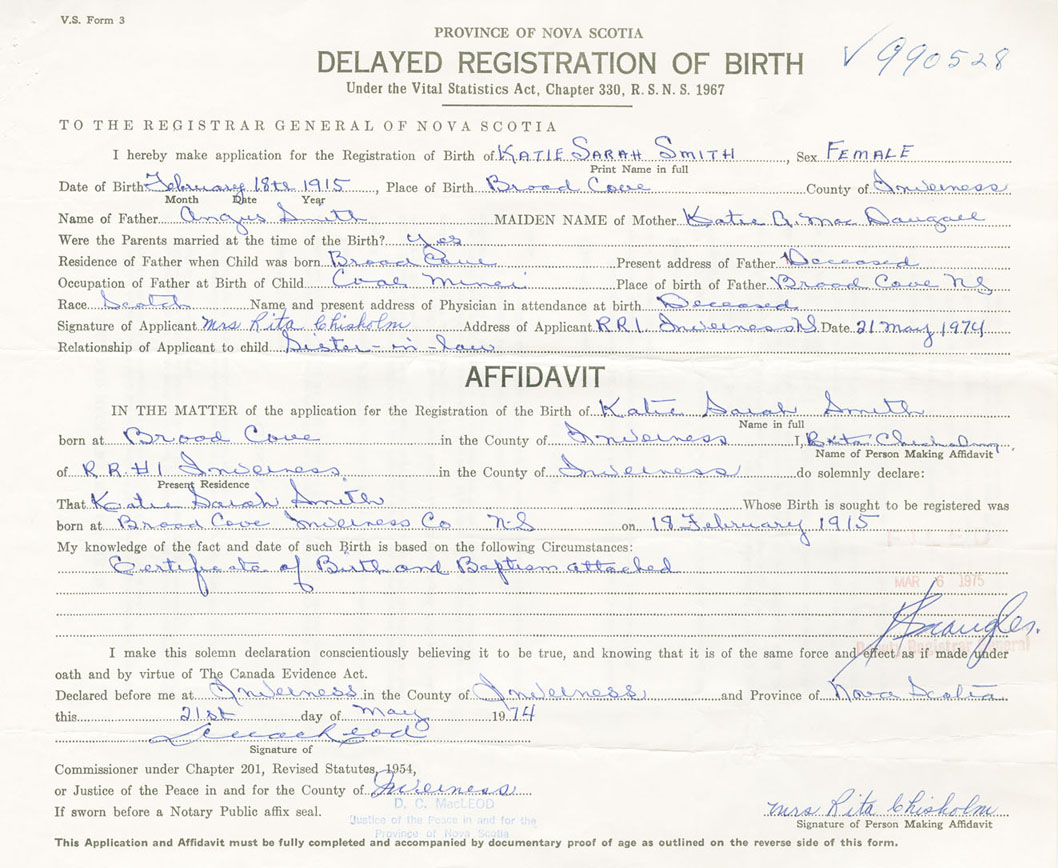 V.S. Form 3
PROVINCE OF NOVA SCOTIA
DELAYED REGISTRATION OF BIRTH
990528
Under the Vital Statistics Act, Chapter 330, R. S. N. S. 1967
TO THE REGISTRAR GENERAL OF NOVA SCOTIA
I hereby make application for the Registration of Birth of KATIE SARAH SMITH, Sex FEMALE
Print Name in full
Date of Birth February 18th 1915, Place of Birth Broad Cove County of Inverness
Month Date Year
Name of Father Angus Smith MAIDEN NAME of Mother Katie A. Mac Dougall
Were the Parents married at the time of the Birth? Yes
Residence of Father when Child was born Broad Cove Present address of Father Deceased
Occupation of Father at Birth of Child Coal Miner Place of birth of Father Broad Cove NS
Race Scotch Name and present address of Physician in attendance at birth Deceased
Signature of Applicant Mrs Rita Chisholm Address of Applicant RR1. Inverness NS Date 21 May 1974
Relationship of Applicant to child Sister-in-law
AFFIDAVIT
IN THE MATTER of the application for the Registration of the Birth of Katie Sarah Smith
Name in full
born at Broad Cove in the County of Inverness I, Rita Chisholm
Name of Person Making Affidavit
of R R #1 Inverness in the County of Inverness do solemnly declare:
Present Residence
That Katie Sarah Smith Whose Birth is sought to be registered was
born at Broad Cove Inverness Co N-S on 18 February 1915
FILED
My knowledge of the fact and date of such Birth is based on the following Circumstances:
Certificate of Birth and Baptism attached
MAR 6 1975
Deputy Registrar General
I make this solemn declaration conscientiously believing it to be true, and knowing that it is of the same force and effect as if made under
oath and by virtue of The Canada Evidence Act.
Declared before me at Inverness in the County of Inverness and Province of Nova Scotia
this 21st day of May 1974
Signature of
Commissioner under Chapter 201, Revised Statutes, 1954,
or Justice of the Peace in and for the County of Inverness
D. C. MacLEOD
If sworn before a Notary Public affix seal.
Justice of the Peace in and for the
Province of Nova Scotia
Mrs Rita Chisholm
Signature of Person Making Affidavit
This Application and Affidavit must be fully completed and accompanied by documentary proof of age as outlined on the reverse side of this form.